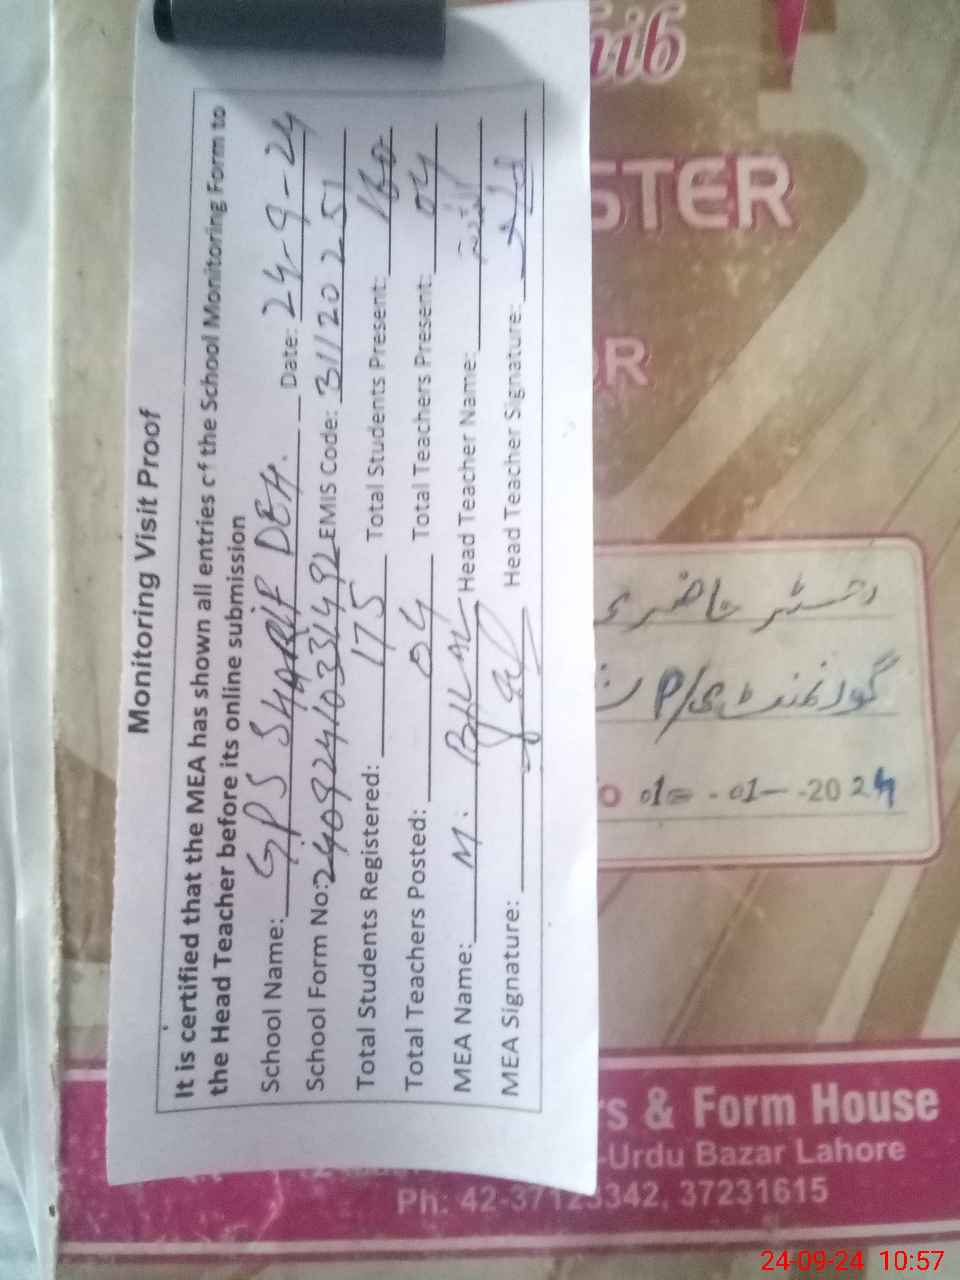 Monitoring Visit Proof
It is certified that the MEA has shown all entries of the School Monitoring Form to
the Head Teacher before its online submission
School Name: GPS SHARIF DEH. Date: 24-9-24
School Form No: EMIS Code: 31120251
Total Students Registered: 175 Total Students Present:
Total Teachers Posted: 04 Total Teachers Present: 04
MEA Name: M: BILAL Head Teacher Name:
MEA Signature: Head Teacher Signature:
hib
STER
OR
رجسٹر حاضری
گورنمنٹ
o 01- -01- -2024
s & Form House
-Urdu Bazar Lahore
Ph: 42-37123342, 37231615
24-09-24 10:57